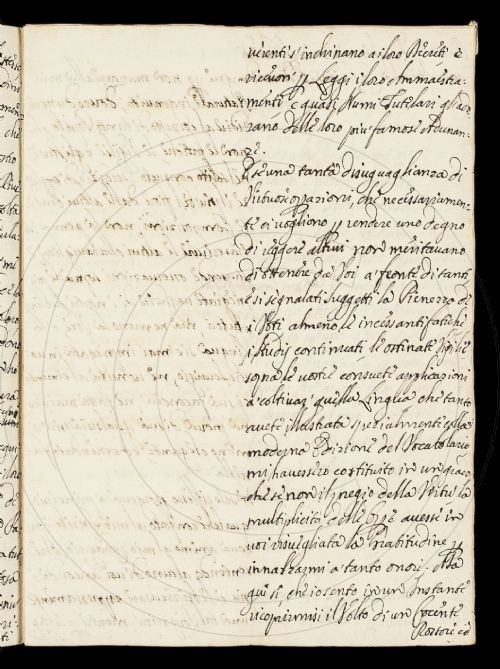 verenti s'inchinano a i loro Decreti e
ricevon p Leggi i loro Ammaestra-
menti e quasi Numi Tutelari gl'ado-
rano delle loro piu famose Adunan-
ze.
E se una tanta disuguaglianza di
Virtuose operazioni, che necessariamen-
te ci vogliono p rendere uno degno
di reggere altrui non meritavano
di ottenere da Voi a fronte di tanti
e si segnalati suggetti la Pienezza de
i Voti almeno le incessanti fatiche
i studij continuati le ostinate Vigilie
sopra le vostre consuete applicazioni
a coltivar quella Lingua che tanto
avete illustrata specialmente colla
moderna Edizione del Vocabolario
mi havessero costituito in un grado
che se non il pregio della Virtù la
multiplicità delle Opre avesse in
voi risvegliata la Gratitudine p
innalzarmi a tanto onore. Ma
qui si che io sento in un Instante
ricoprirmisi il Volto di un cocente
Rossore ed